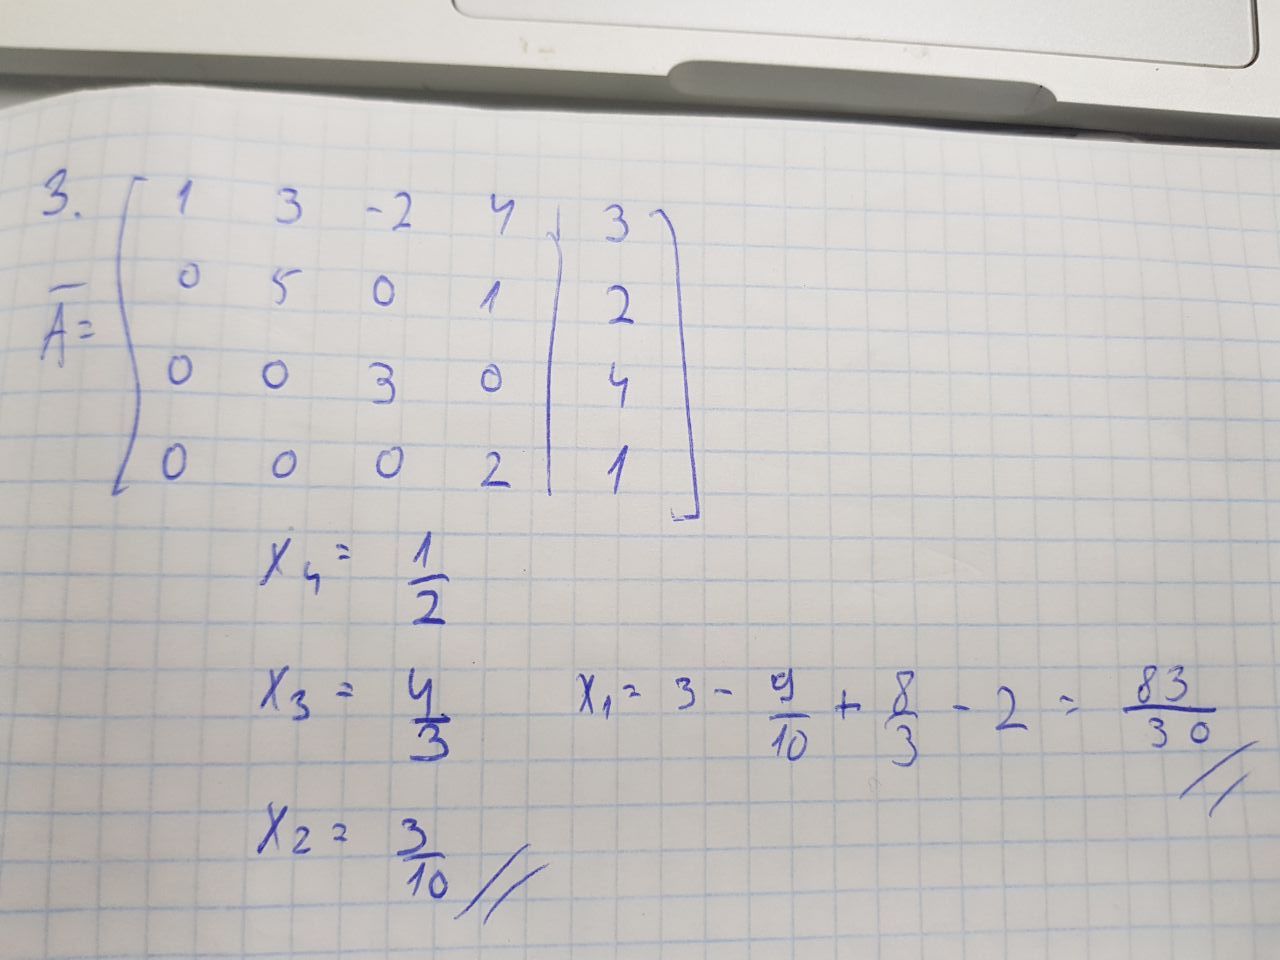 3.
A̅ = [ 1 3 -2 4 | 3 ]
0 5 0 1 | 2
0 0 3 0 | 4
0 0 0 2 | 1
x₄ = 1/2
x₃ = 4/3
x₁ = 3 - 9/10 + 8/3 - 2 = 83/30 //
x₂ = 3/10 //